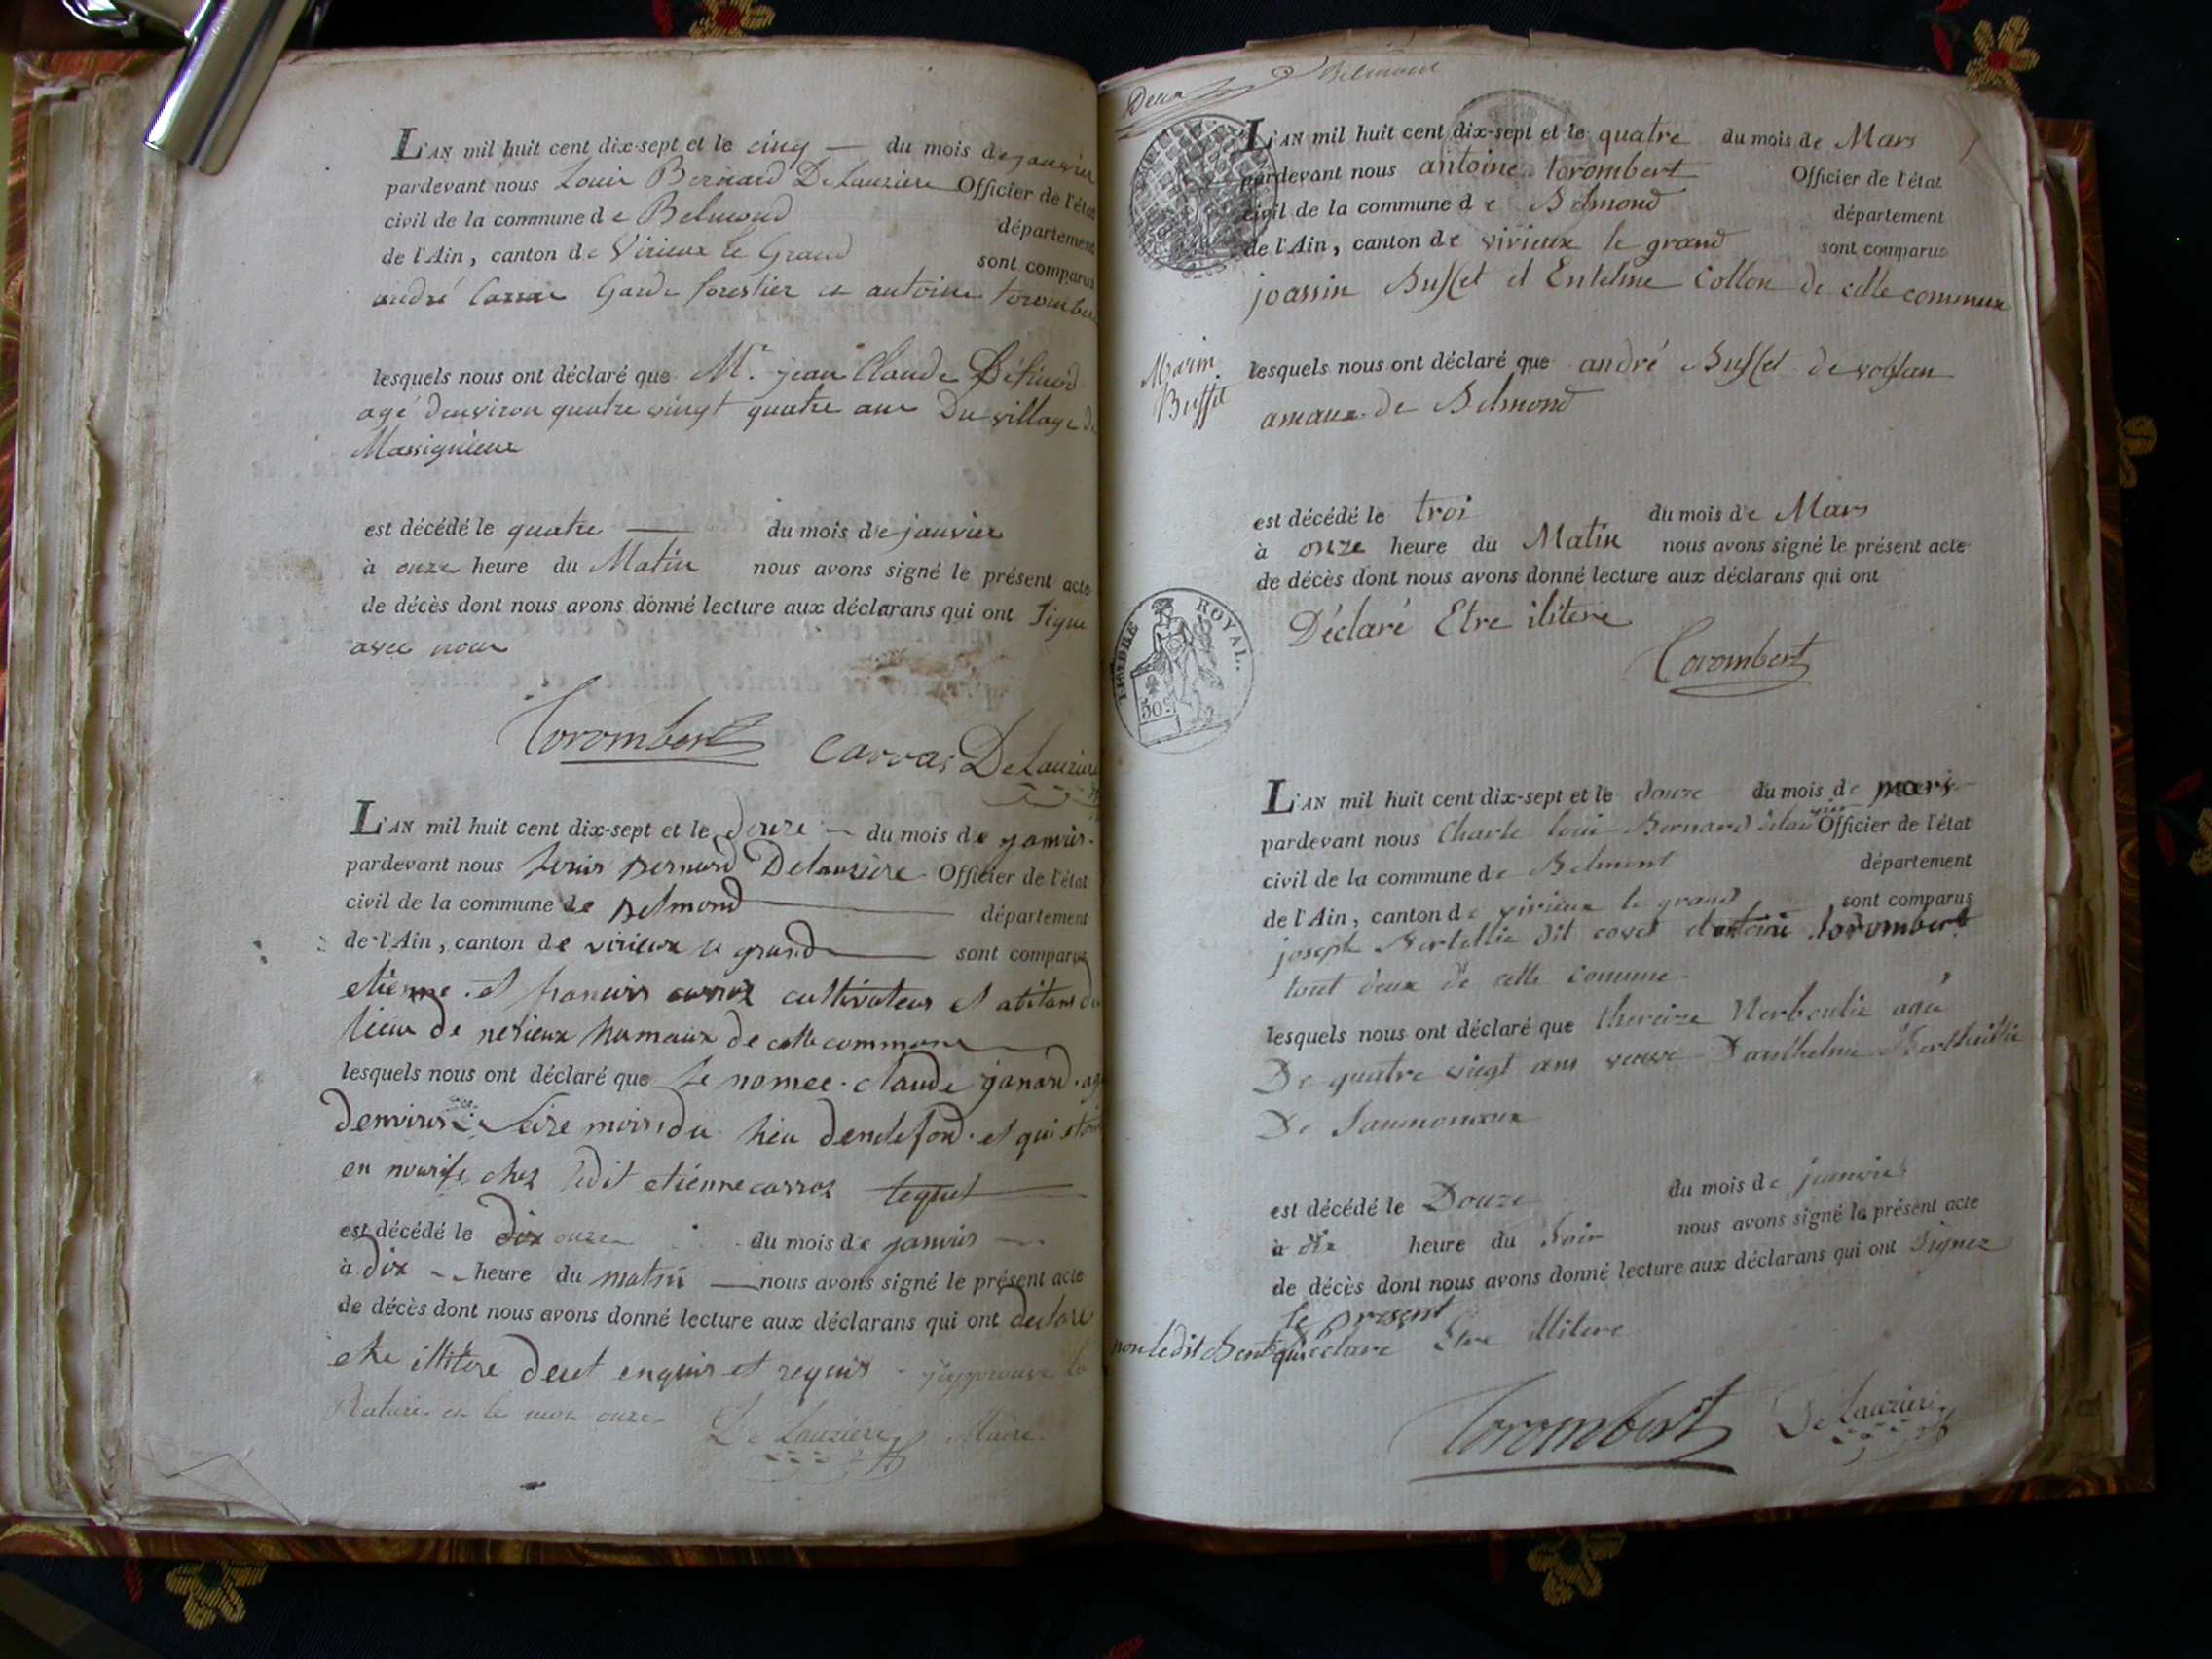 L'AN mil huit cent dix-sept et le cinq — du mois de janvier
pardevant nous Louis Bernard DeLauzière Officier de l'état
civil de la commune de Belmond département
de l'Ain, canton de Virieux le Grand sont comparus
andré Carrar Garde forestier et antoine torombert
lesquels nous ont déclaré que Mr. jean Claude
agé denviron quatre vingt quatre ans Du village de
Massignieux
est décédé le quatre — du mois de janvier
à onze heure du Matin nous avons signé le présent acte
de décès dont nous avons donné lecture aux déclarans qui ont Signé
avec nous
Torombert Carrar DeLauzière
L'AN mil huit cent dix-sept et le douze — du mois de janvier
pardevant nous Louis Bernard Delauzière Officier de l'état
civil de la commune de Belmond département
de l'Ain, canton de virieux le grand sont comparus
etiénne et francois carroz cultivateurs et abitans du
lieux de hamaux de cette commune
lesquels nous ont déclaré que Le nomee claude janard agé
denviron seize mois du lieu et qui etoit
en nourise chez ledit etiénne carroz lequel
est décédé le dix onze du mois de janvier
à dix heure du matin nous avons signé le présent acte
de décès dont nous avons donné lecture aux déclarans qui ont declare
etre illitere de cet enquis et requis japprouve la
Rature et le mot onze DeLauzière Maire
Deux Belmond
L'AN mil huit cent dix-sept et le quatre du mois de Mars
pardevant nous antoine torombert Officier de l'état
civil de la commune de Belmond département
de l'Ain, canton de virieux le grand sont comparus
joassin Buffet et Entelme Collon de celle commune
Marin
Buffet
lesquels nous ont déclaré que andré Buffet de voglan
amaux de Belmond
est décédé le troi du mois de Mars
à onze heure du Matin nous avons signé le présent acte
de décès dont nous avons donné lecture aux déclarans qui ont
Déclaré Etre ilitere
Torombert
TIMBRE ROYAL.
50c
L'AN mil huit cent dix-sept et le douze du mois de mars
pardevant nous Charle loui Bernard delauzier Officier de l'état
civil de la commune de Belmont département
de l'Ain, canton de virieux le grand sont comparus
joseph Bertellie dit covet et antoine torombert
tout deux de celle comune
lesquels nous ont déclaré que thereize agé
De quatre vingt ans veuve Danthelme
De
est décédé le Douze du mois de janvie
à dix heure du Soir nous avons signé le présent acte
de décès dont nous avons donné lecture aux déclarans qui ont Signez
le present
non ledit qui declare Etre illitere
Torombert DeLauzière